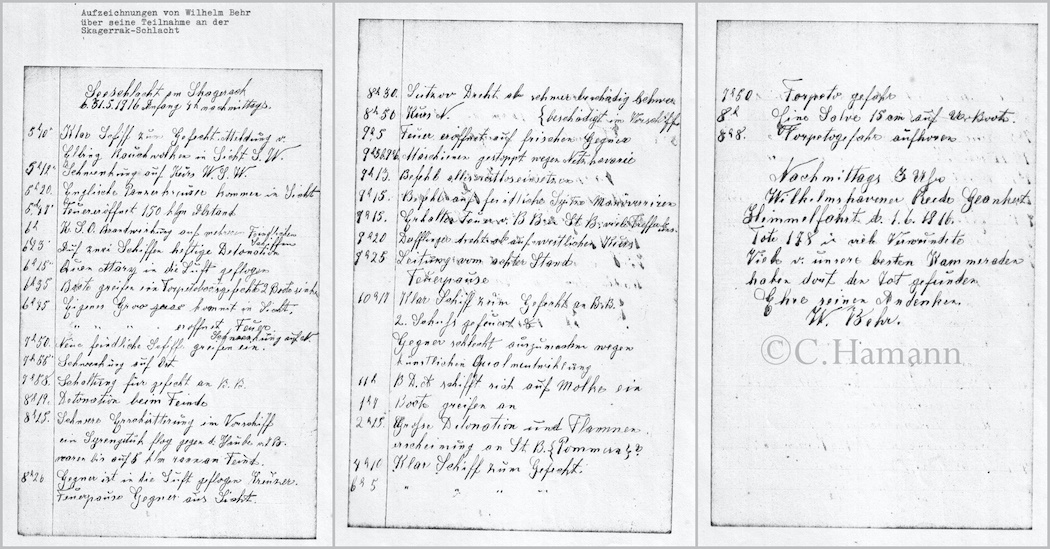 Aufzeichnungen von Wilhelm Behr
über seine Teilnahme an der
Skagerrak-Schlacht
Seeschlacht am Skagerach
31.5.1916 Anfang 4h nachmittags.
Klar Schiff zum Gefecht. Meldung v.
Elbing Rauchwolken in Sicht S.W.
Schwenkung auf Kurs W.S.W.
5h20. Engliche Panzerkreuzer kommen in Sicht
Feuer eröffnet 150 hm Abstand
6h
Auf zwei Schiffen heftige Detonation
6h25 Queen Mary in die Luft geflogen
6h35 Boote greifen ein Torpedobootsgefecht 2 Boote sinken
6h45 Eigenes Gros kommt in Sicht.
" " " eröffnet Feuer
7h50. Neue feindliche Schiffe greifen ein. Schwenkung auf N.
7h55 Schwenkung auf Ost
7h58. Schaltung für Gefecht an B.B.
8h19. Detonation beim Feinde
8h25. Schwere Erschütterung im Vorschiff
ein Sprengstück flog gegen d. Haube
waren bis auf hm ran an Feind.
8h26 Gegner ist in die Luft geflogen Kreuzer.
Feuerpause Gegner aus Sicht.
8h30. Lützow Dreht ab schwer beschädigt
8h50 Kurs N. {beschädigt im Vorschiff
9h5 Feuer eröffnet auf frischen Gegner
Maschienen gestoppt wegen
9h13. Befehl
9h15. Befehl auf feindliche Spitze Manövrieren
9h15. Erhalten Feuer v. B.B. u. St.B. viele Treffer
9h20 Dafflinger dreht ab auf westlichen Kurs
9h25 Leitung vom achter Stand
Feuerpause
Klar Schiff zum Gefecht an B.B.
2. Schuss gefeuert
Gegner schlecht auszumachen wegen
künstlicher Qualmentwicklung
11h B.D.A schifft sich auf Moltke ein
Boote greifen an
2h15. Grosse Detonation und Flammen
erscheinung an St.B. {Pommern}
4h10 Klar Schiff zum Gefecht.
6h5 " " " "
7h50 Torpeto gefahr
8h Eine Salve 15 cm auf U-Boote.
8h28. Torpetogefahr aufhören
Nachmittags 3 Uhr
Wilhelmshavener Reede Geankert
Himmelfahrt d. 1.6.1916.
Tote 178 u. viele Verwundete
Viele v. unsere besten Kammeraden
haben dort den Tot gefunden
Ehre seinen Andenken
W. Behr.
©C.Hamann